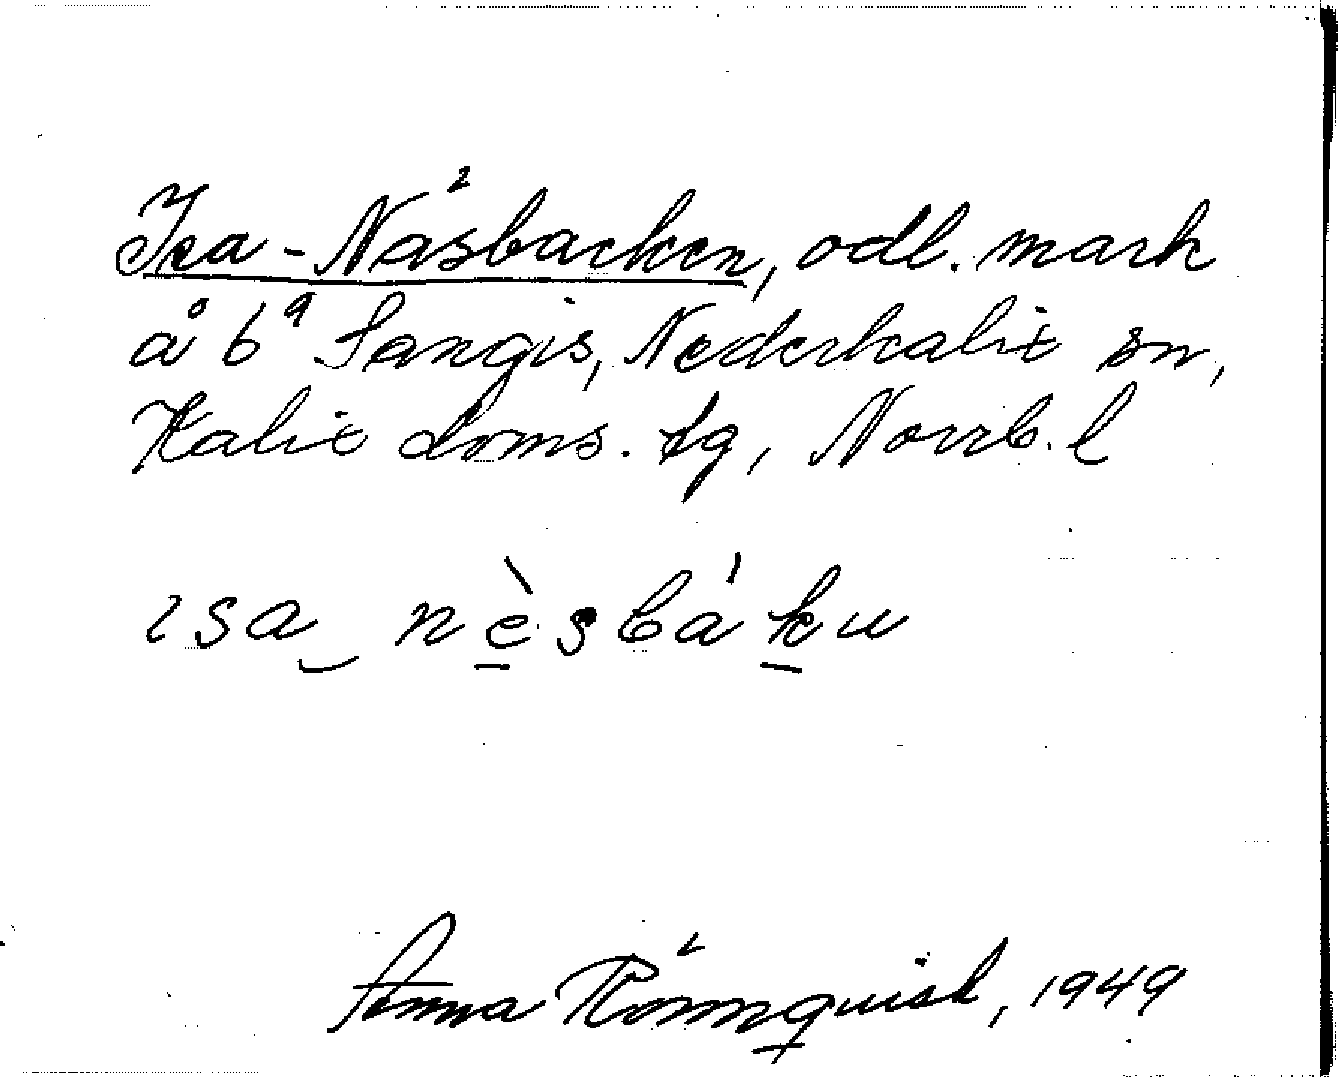 Isa-Näsbacken, odl. mark
å bᵈ Sangis, Nederkalix sn,
Kalix doms. tg, Norrb. l
ɩsa‿ nèsbáku
Anna Rönnquist, 1949